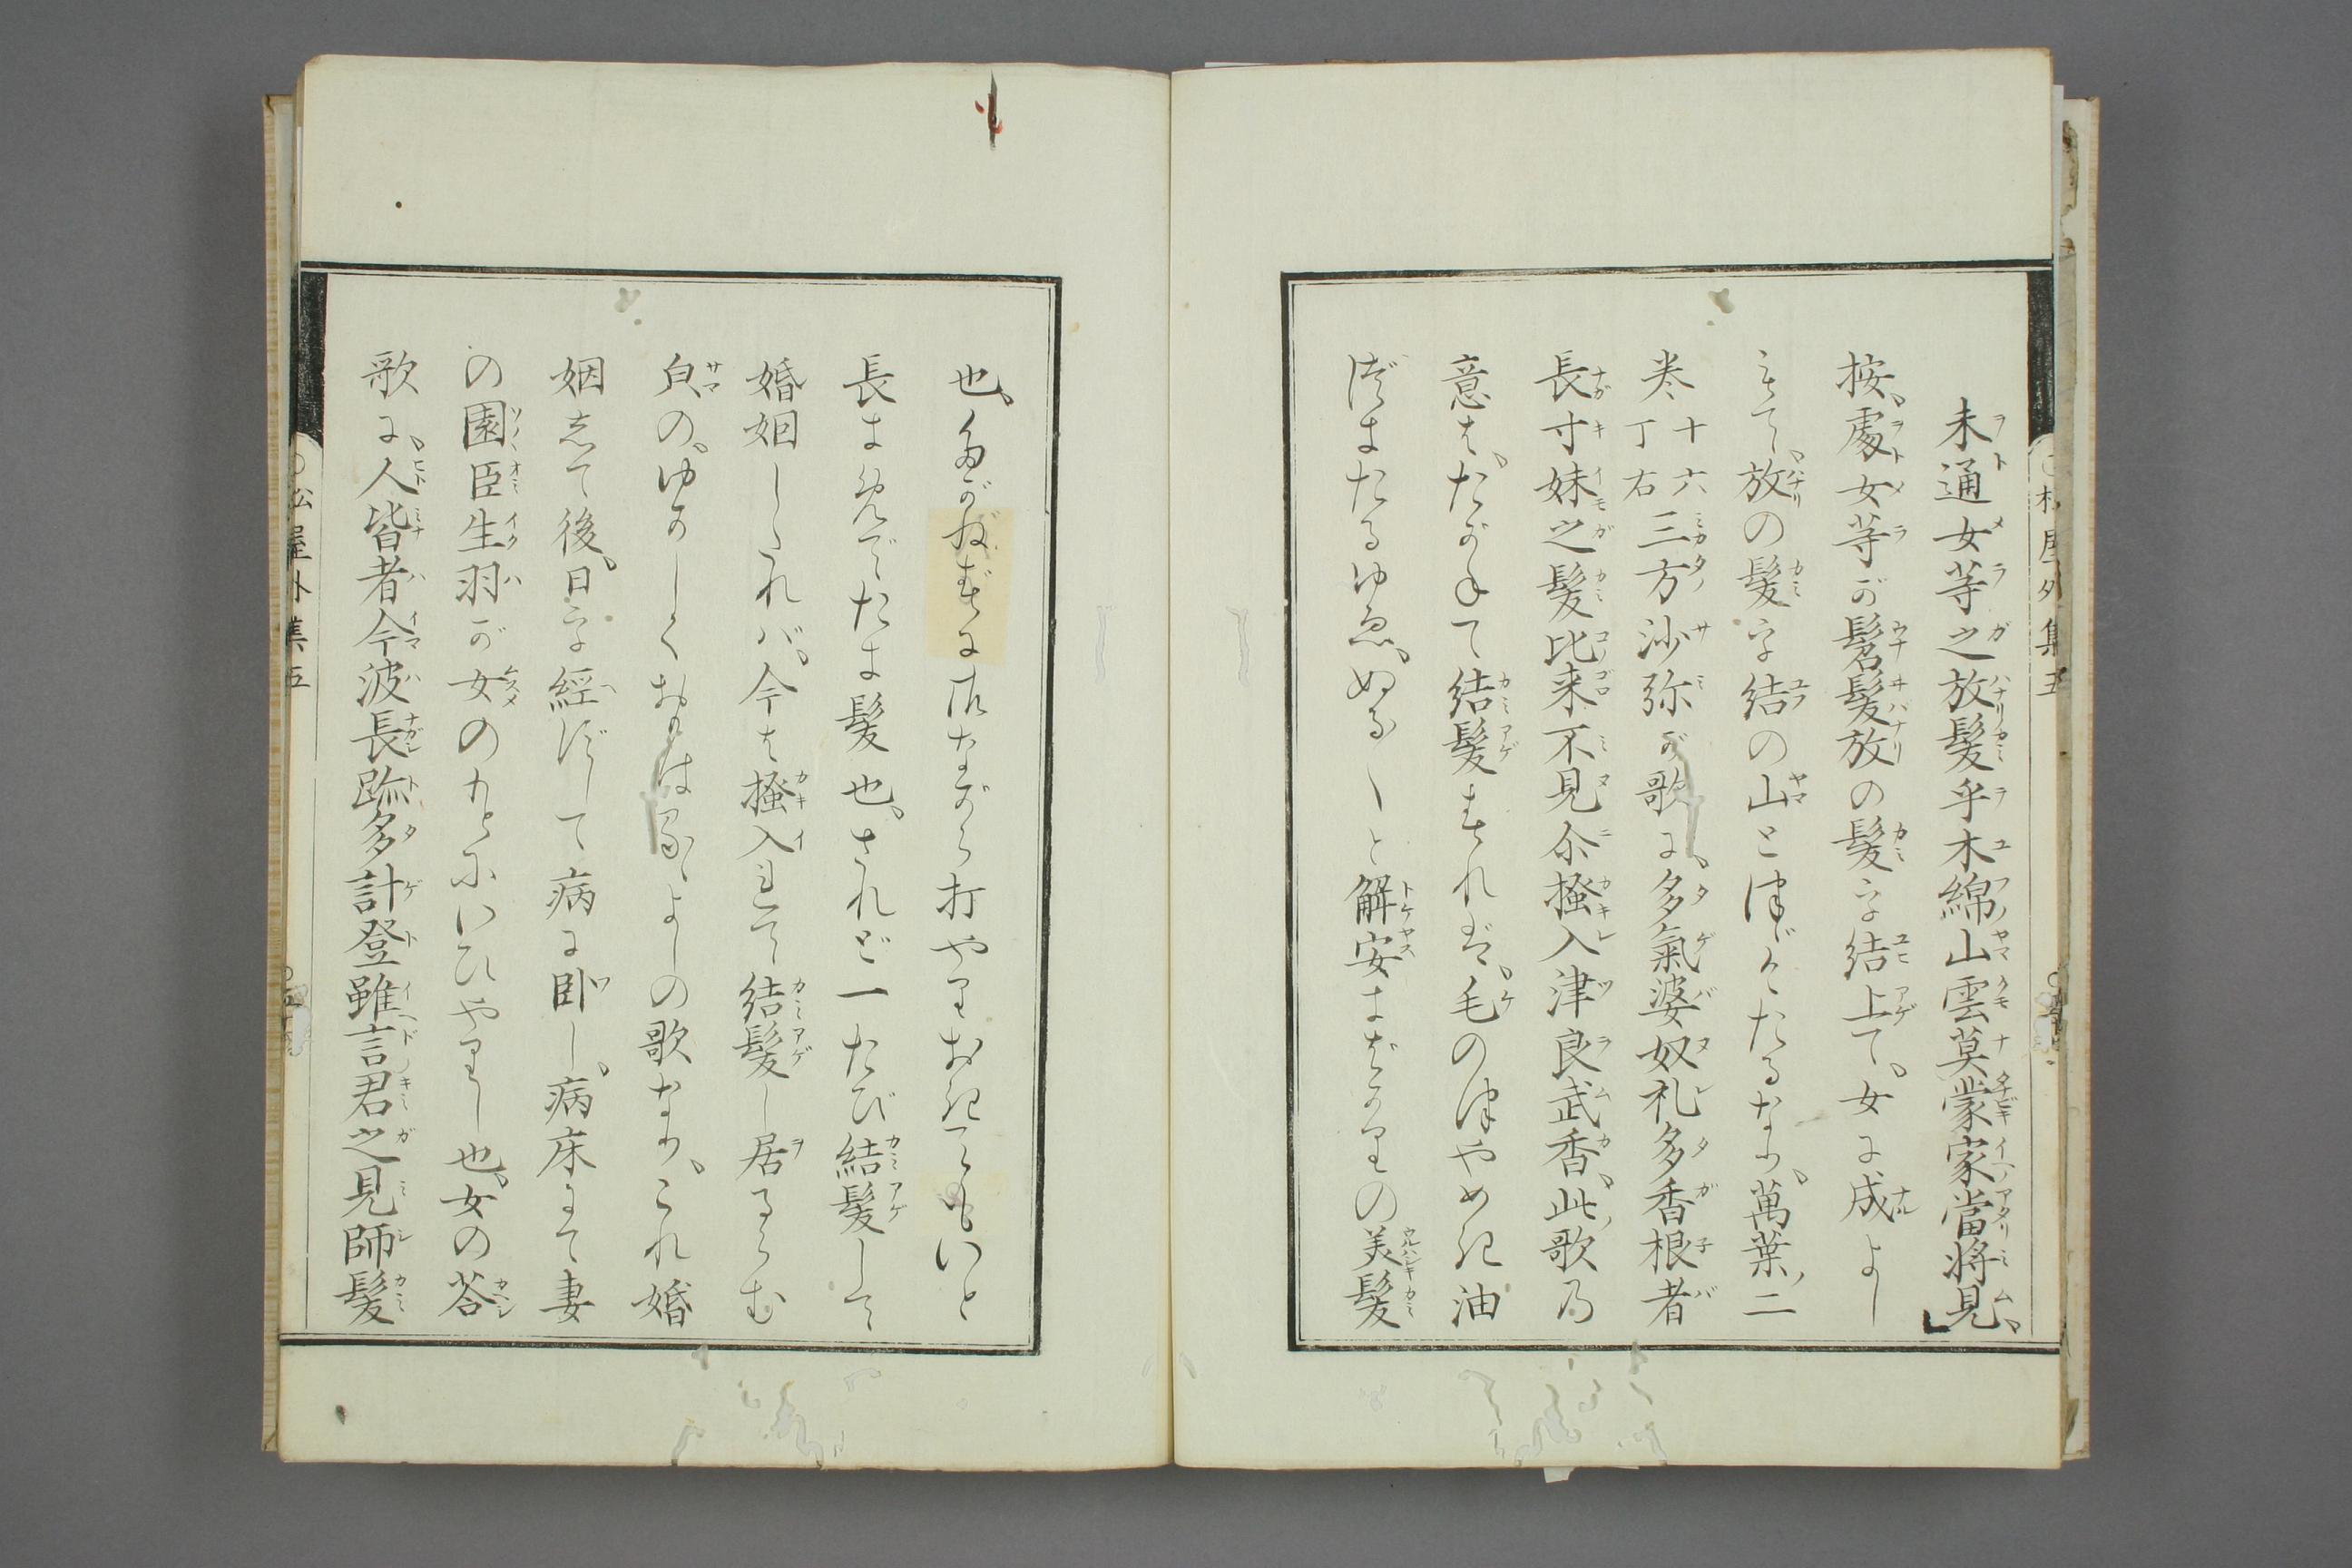 未通女等之放髪乎木綿山雲莫蒙家當将見
按、處女等が髫髪放の髪を結上て、女に成よし
にて、放の髪を結の山とつゞけたるなり、萬葉ノ二
巻十六丁右三方沙弥が歌に、多氣婆奴礼多香根者
長寸妹之髪比来不見尓搔入津良武香、此歌の
意は、たがねて結髪すれば、毛のつやめき油
づきたるゆゑ、ぬる〱と解安きばかりの美髪
也、たがねずに
ながら打やりおきてもいと
長きめでたき髪也、されど一たび結髪して
婚姻しつれバ、今は搔入れて結髪し居るらむ
皃の、ゆかしくおもはるゝよしの歌なり、これ婚
姻して後、日を経ずして病に臥し、病床にて妻
の園臣生羽が女のもとにいひやりし也、女の荅
歌に、人皆者今波長跡多計登雖言君之見師髪
松屋外集五
松屋外集五